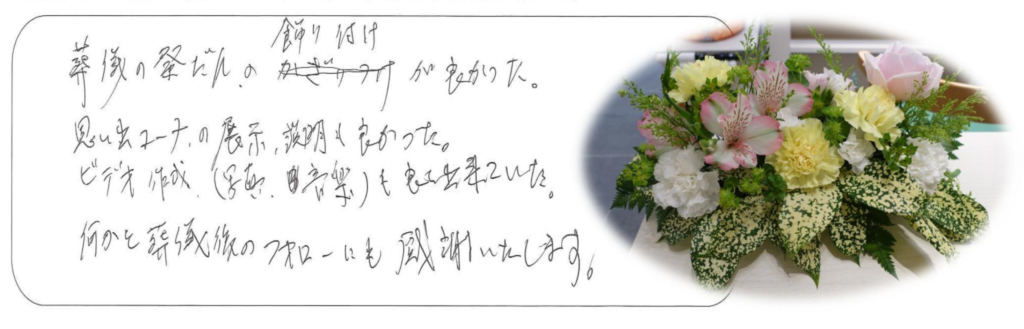 葬儀の祭だんの飾り付けが良かった。
思い出コーナーの展示、説明も良かった。
ビデオ作成、(写真、音楽)も良く出来ていた。
何かと葬儀後のフォローにも感謝いたします。